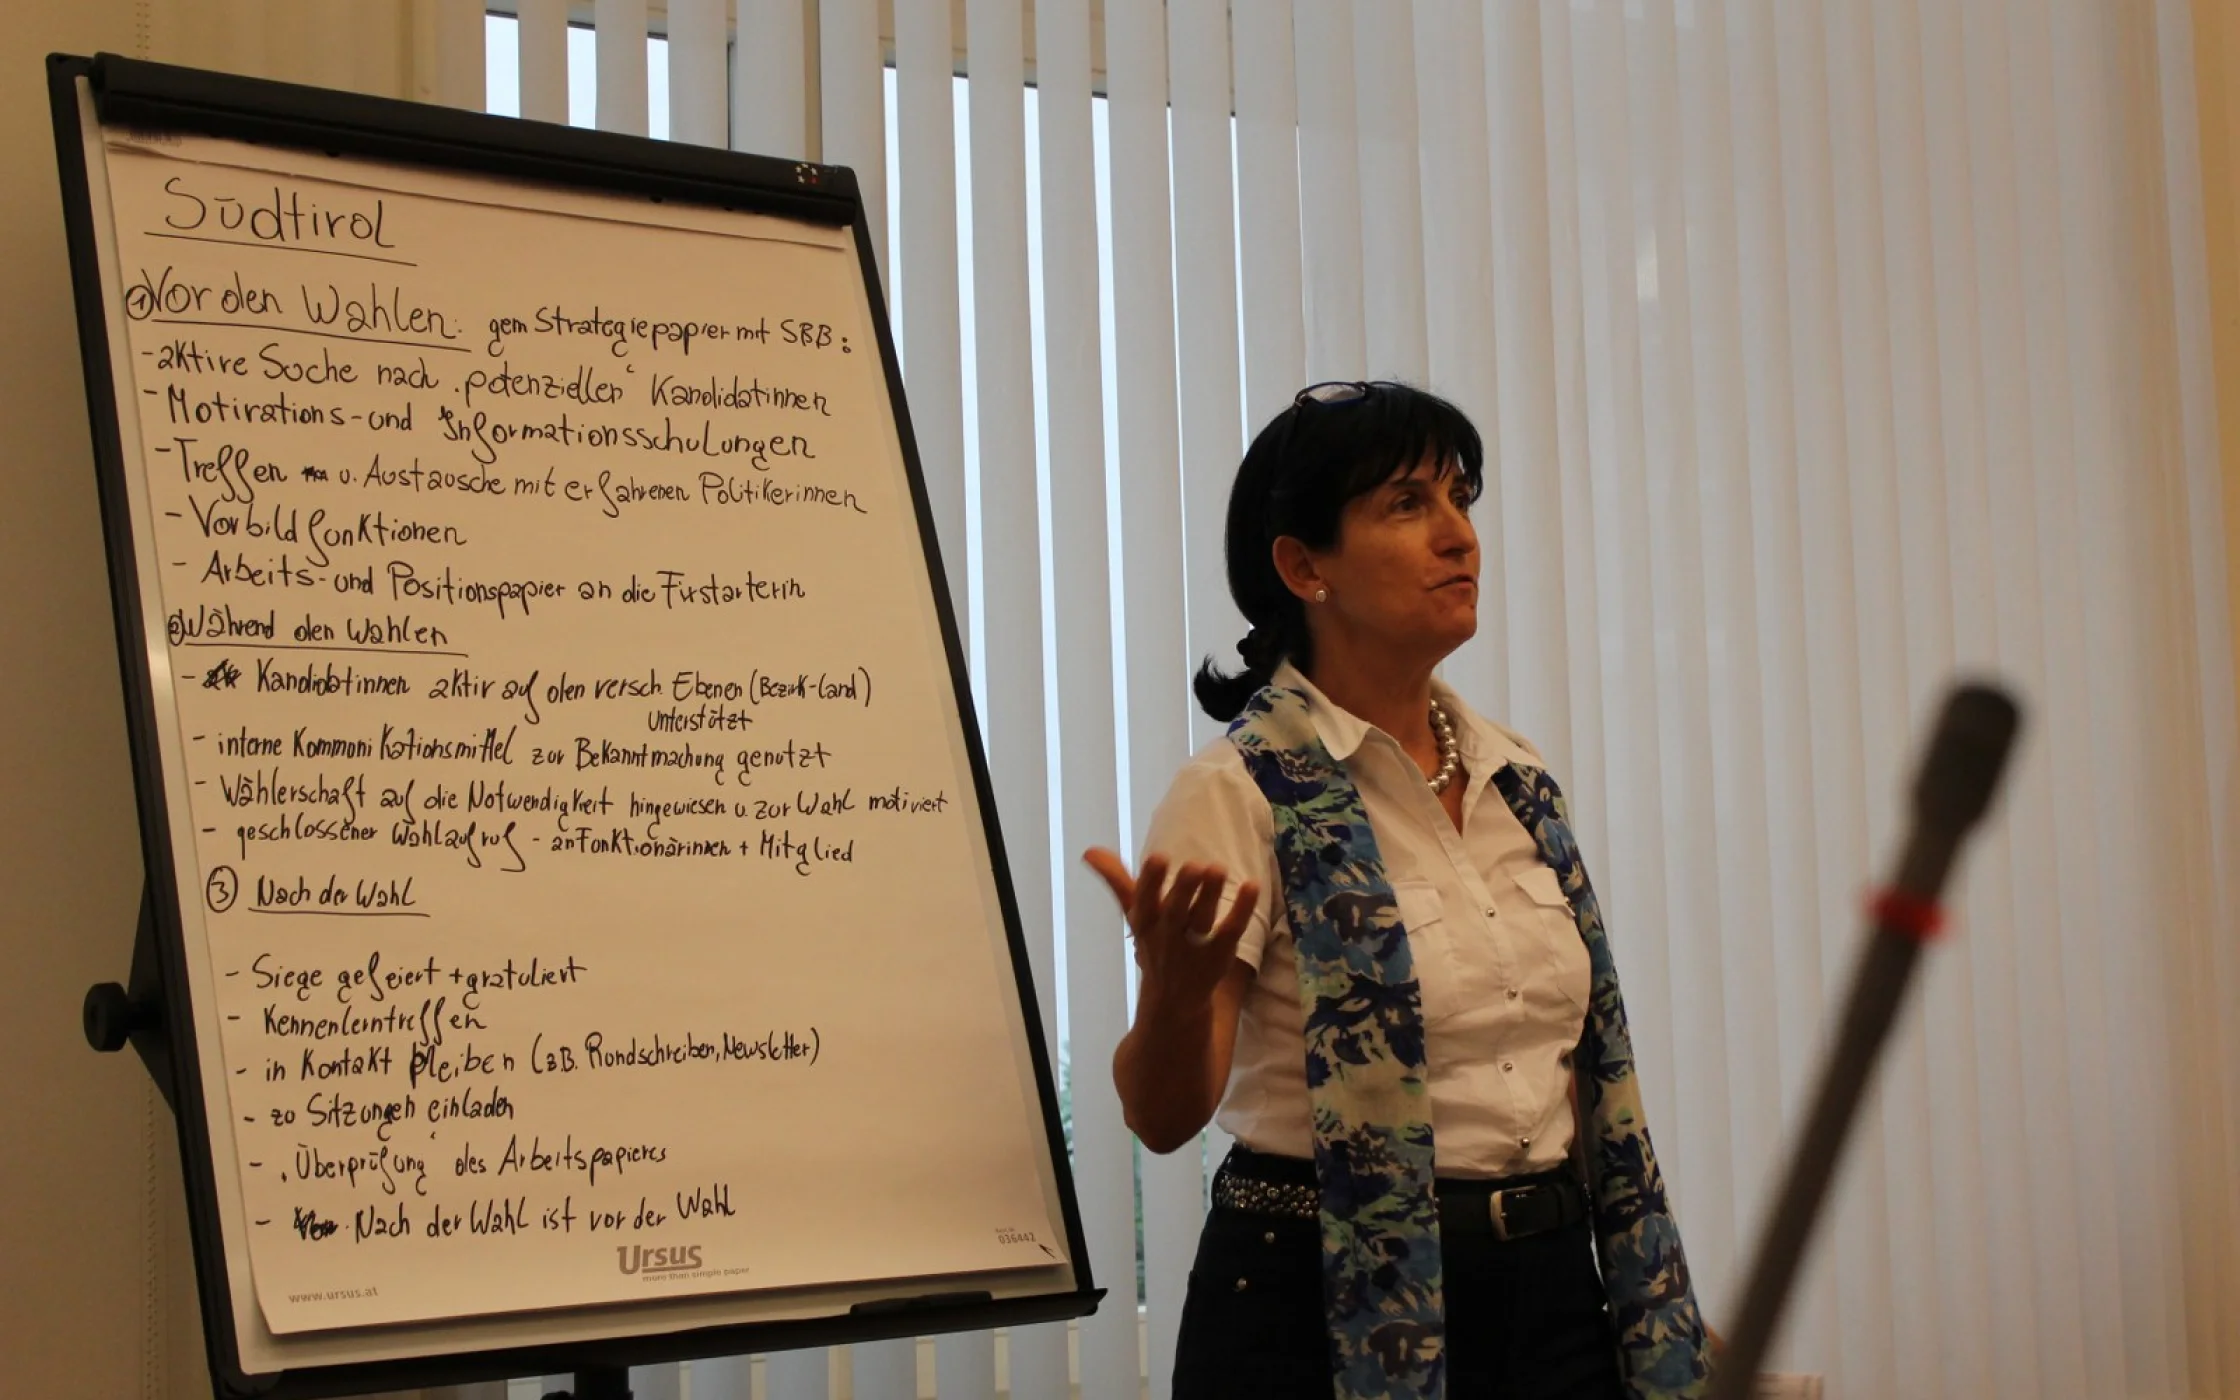 Südtirol
① Vor den Wahlen: gem Strategiepapier mit SBB:
- aktive Suche nach "potenziellen" Kandidatinnen
- Motivations- und Informationsschulungen
- Treffen u. Austausche mit erfahrenen Politikerinnen
- Vorbildfunktionen
- Arbeits- und Positionspapier an die Firstarterin
② Während den Wahlen
- Kandidatinnen aktiv auf den versch. Ebenen (Bezirk-Land)
unterstützt
- interne Kommunikationsmittel zur Bekanntmachung genutzt
- Wählerschaft auf die Notwendigkeit hingewiesen u. zur Wahl motiviert
- geschlossener Wahlaufruf - an Funktionärinnen + Mitglied
③ Nach der Wahl
- Siege gefeiert + gratuliert
- Kennenlerntreffen
- in Kontakt bleiben (z.B. Rundschreiben, Newsletter)
- zu Sitzungen einladen
- "Überprüfung" des Arbeitspapieres
- Nach der Wahl ist vor der Wahl
Ursus
more than simple paper
www.ursus.at
036442